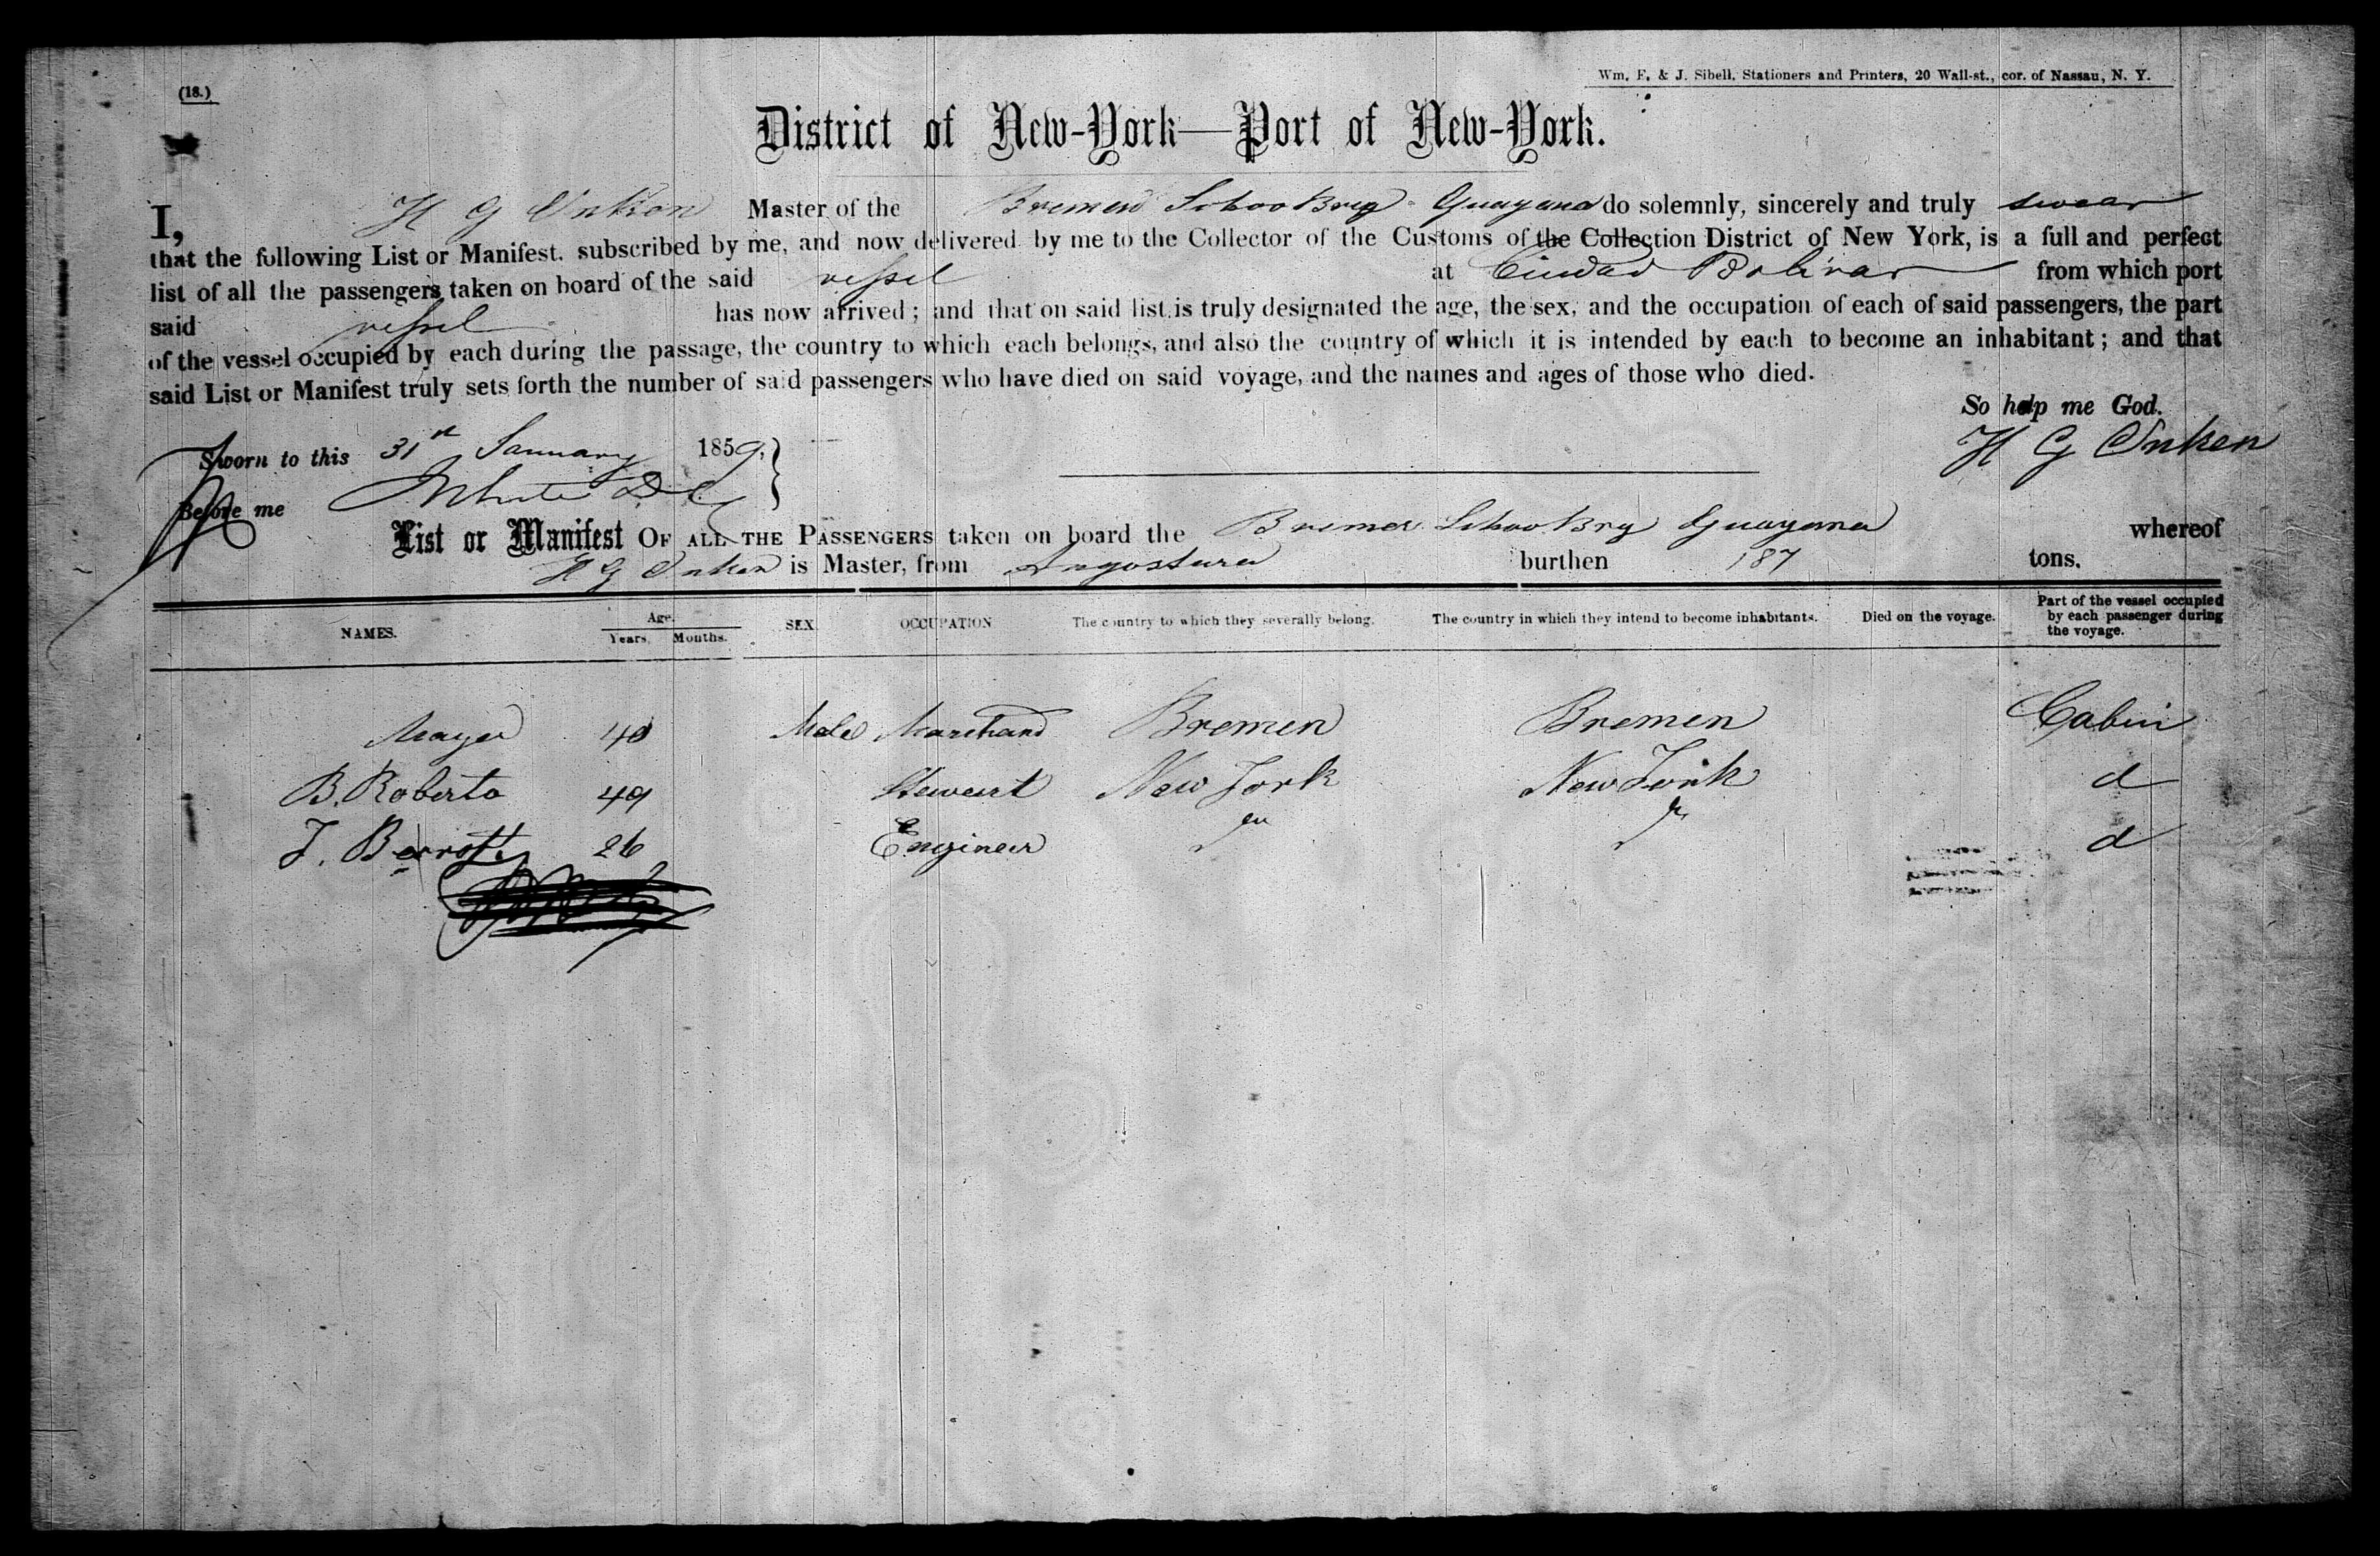 (18.)
Wm. F. & J. Sibell, Stationers and Printers, 20 Wall-st., cor. of Nassau, N. Y.
District of New-York—Port of New-York.
I, H G Onken Master of the Bremen Schoo Brig Guayana do solemnly, sincerely and truly swear
that the following List or Manifest, subscribed by me, and now delivered by me to the Collector of the Customs of the Collection District of New York, is a full and perfect
list of all the passengers taken on board of the said vessel at Ciudad Bolivar from which port
said vessel has now arrived; and that on said list is truly designated the age, the sex, and the occupation of each of said passengers, the part
of the vessel occupied by each during the passage, the country to which each belongs, and also the country of which it is intended by each to become an inhabitant; and that
said List or Manifest truly sets forth the number of said passengers who have died on said voyage, and the names and ages of those who died.
So help me God.
Sworn to this 31st January 1859, H G Onken
Before me White D C
List or Manifest OF ALL THE PASSENGERS taken on board the Bremer Schoo Brig Guayana whereof
H G Onken is Master, from Angostura burthen 187 tons.
NAMES. Age. Years. Months. SEX. OCCUPATION The country to which they severally belong. The country in which they intend to become inhabitants. Died on the voyage. Part of the vessel occupied by each passenger during the voyage.
Mayer 40 Male Marchand Bremen Bremen Cabin
B. Roberts 49 Stewart New York New York d
J. 26 Engineer d